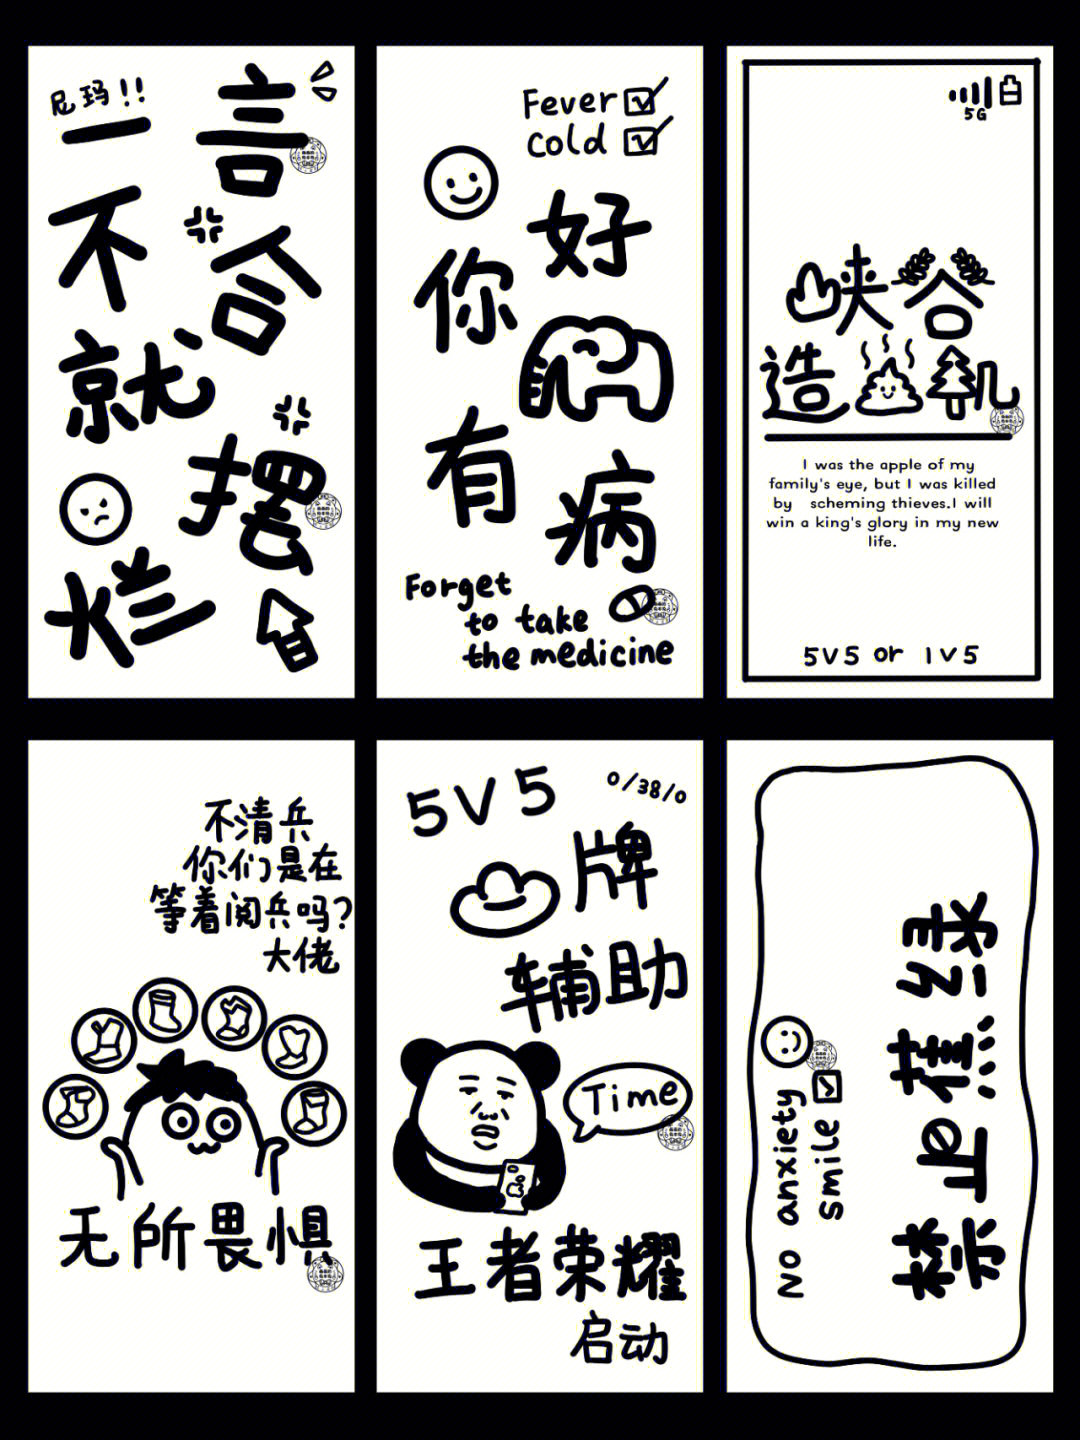 尼玛!!
一言
不合
就
摆
烂
Fever
Cold
你好
有病
Forget
to take
the medicine
5G
峡谷
造 机
I was the apple of my
family's eye, but I was killed
by scheming thieves.I will
win a king's glory in my new
life.
5V5 or 1V5
不清兵
你们是在
等着阅兵吗?
大佬
无所畏惧
5V5
0/38/0
牌
辅助
Time
王者荣耀
启动
禁止蕉绿
No anxiety
smile